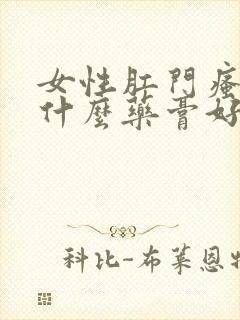 女性肛門瘙
什麼藥膏好
科比-布萊恩特